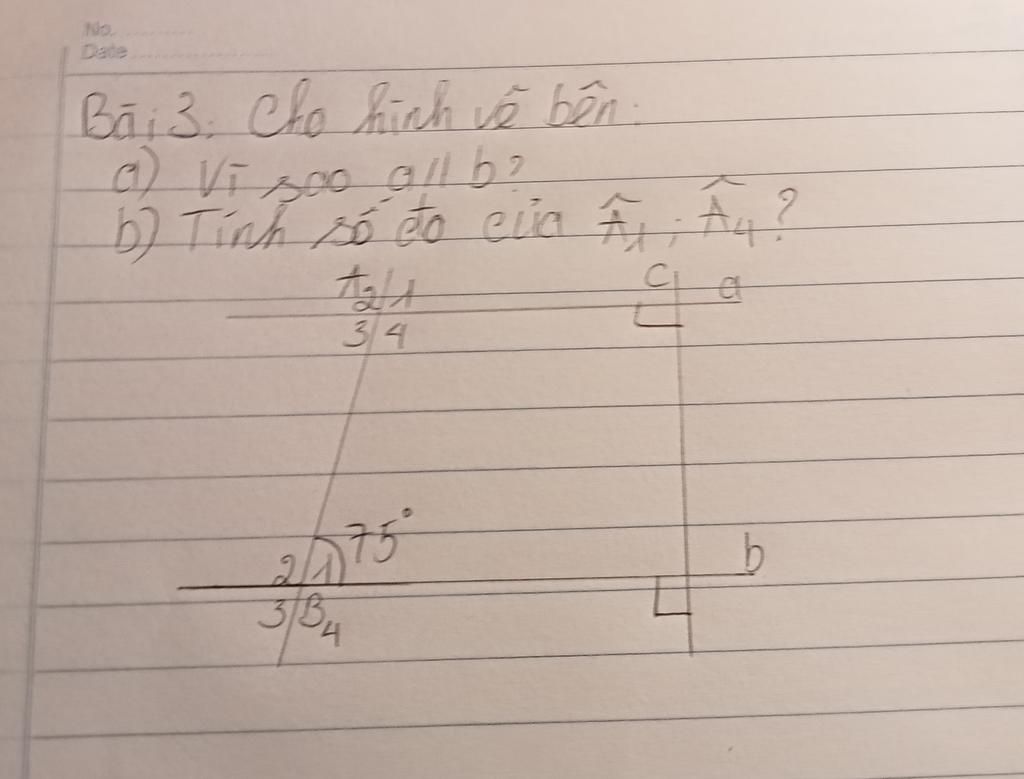 No.
Date
Bài 3: Cho hình vẽ bên:
a) Vì sao a // b?
b) Tính số đo của Â₁; Â₄?
A 2 1 c a
3 4
75°
2 1 b
3 B 4